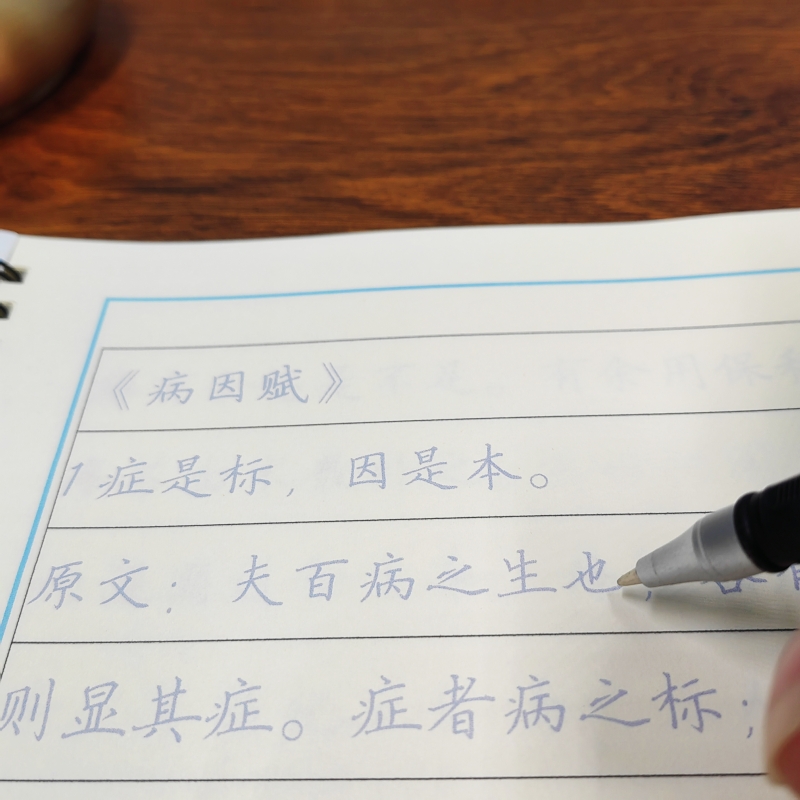 《病因赋》
1症是标，因是本。
原文：夫百病之生也，各有
则显其症。症者病之标；